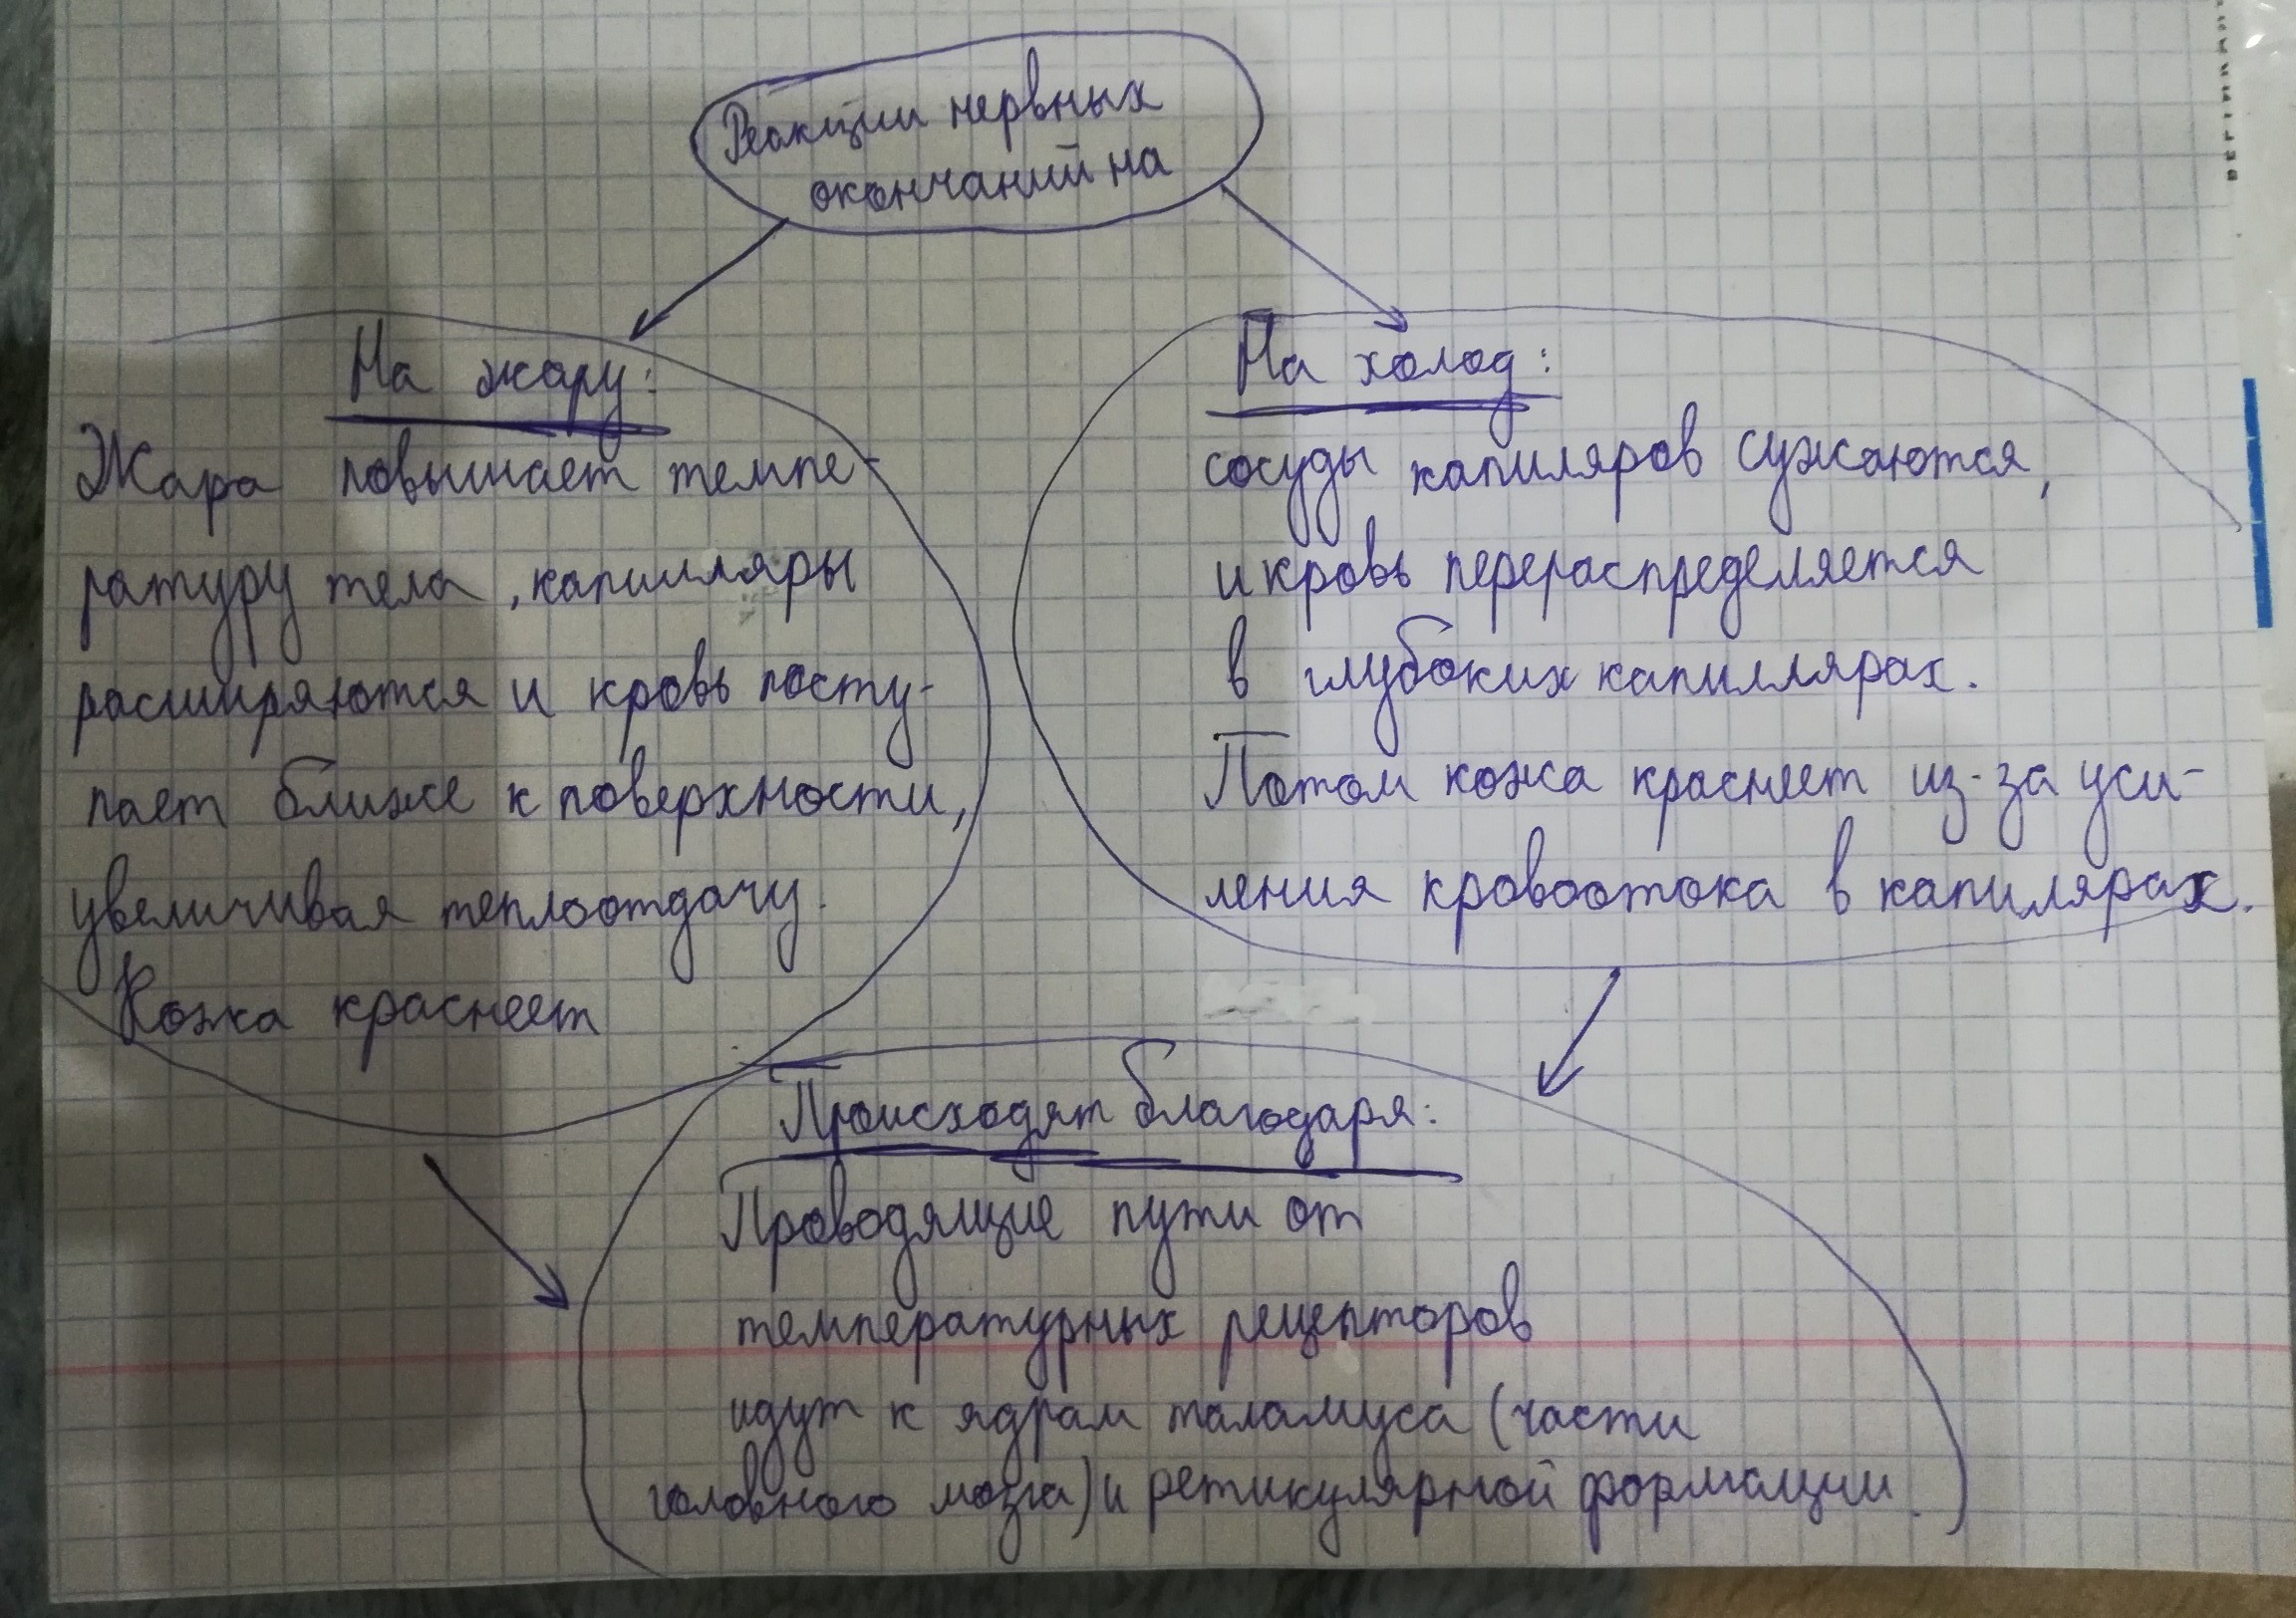 Реакции нервных
окончаний на
На жару:
Жара повышает темпе-
ратуру тела, капилляры
расширяются и кровь посту-
пает ближе к поверхности,
увеличивая теплоотдачу.
Кожа краснеет
На холод:
сосуды капиляров сужаются,
и кровь перераспределяется
в глубоких капиллярах.
Потом кожа краснеет из-за уси-
ления кровоотока в капилярах.
Происходят благодаря:
Проводящие пути от
температурных рецепторов
идут к ядрам таламуса (части
головного мозга) и ретикулярной формации.